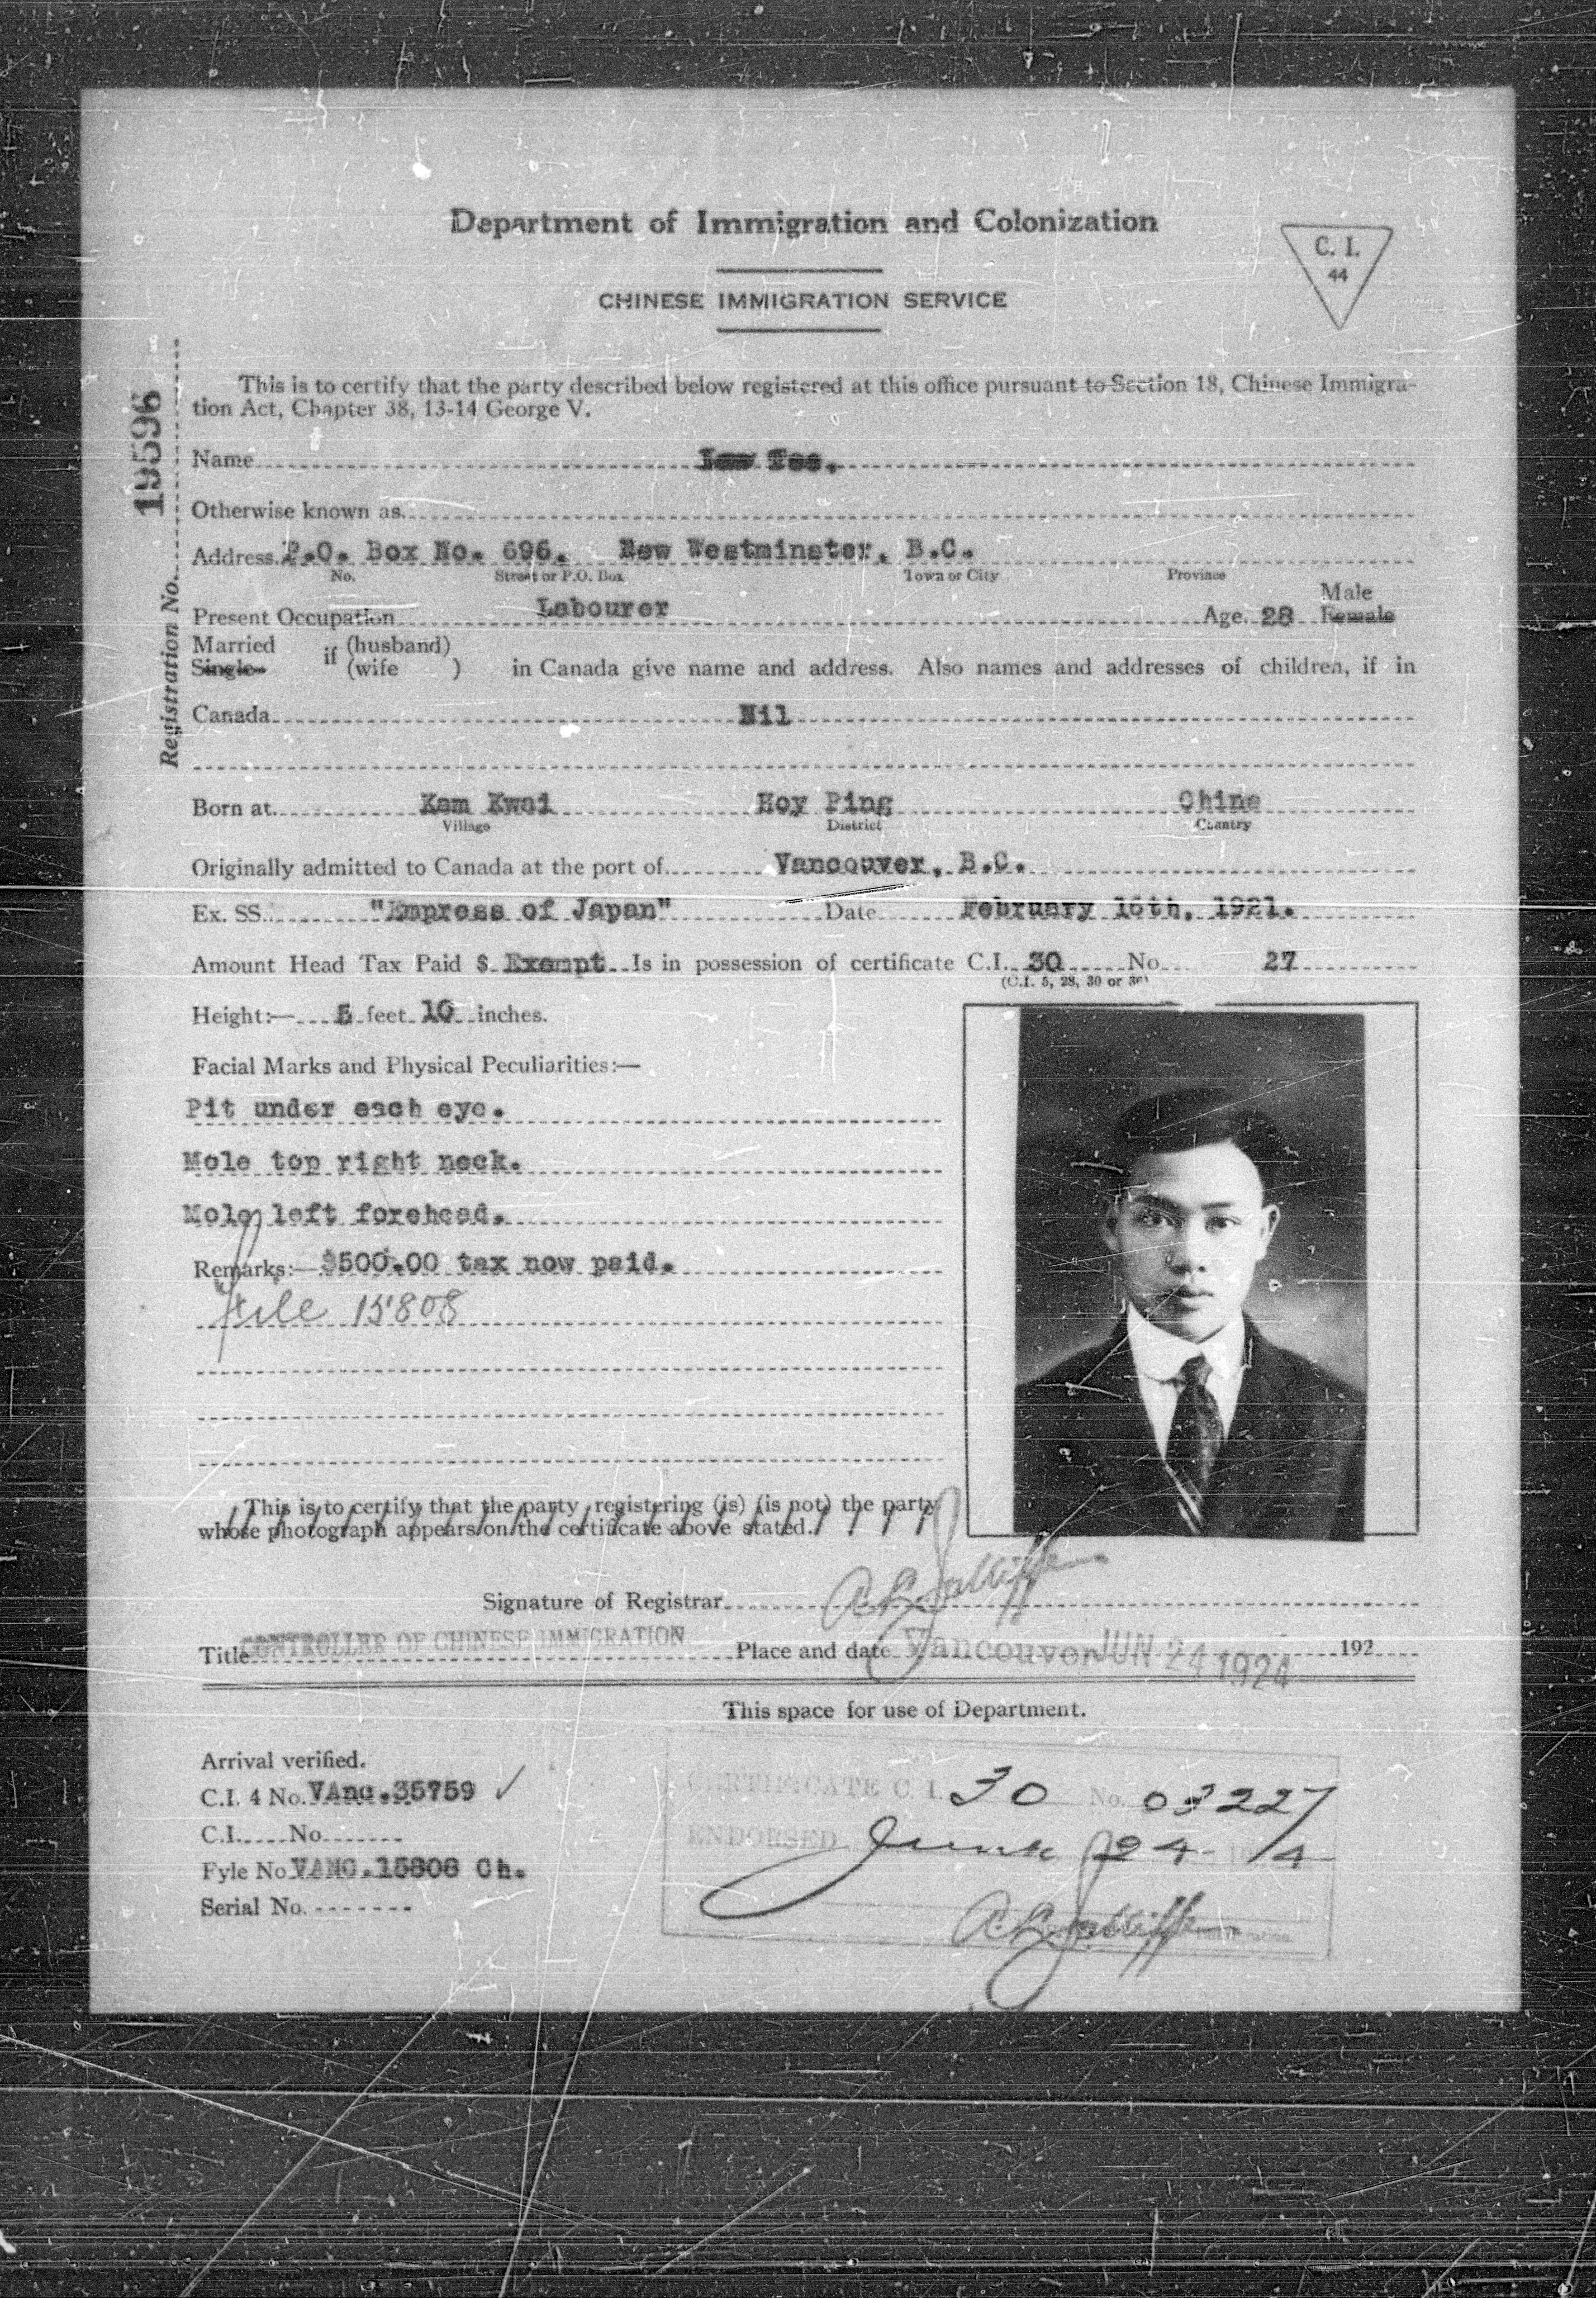 Department of Immigration and Colonization
C. I.
44
CHINESE IMMIGRATION SERVICE
This is to certify that the party described below registered at this office pursuant to Section 18, Chinese Immigra-
tion Act, Chapter 38, 13-14 George V.
Registration No. 19596
Name
Otherwise known as
Address P.O. Box No. 696. New Westminster, B.C.
No. Street or P.O. Box Town or City Province
Male
Present Occupation Labourer Age 28 Female
Married if (husband)
Single (wife ) in Canada give name and address. Also names and addresses of children, if in
Canada Nil
Born at Kam Kwai Hoy Ping China
Village District Country
Originally admitted to Canada at the port of Vancouver, B.C.
Ex. SS. "Empress of Japan" Date February 16th, 1921.
Amount Head Tax Paid $ Exempt Is in possession of certificate C.I. 30 No. 27
(C.I. 5, 28, 30 or 36)
Height:— 5 feet 10 inches.
Facial Marks and Physical Peculiarities:—
Pit under each eye.
Mole top right neck.
Mole left forehead.
Remarks:— $500.00 tax now paid.
File 15808
This is to certify that the party registering (is) (is not) the party
whose photograph appears on the certificate above stated.
Signature of Registrar
Title CONTROLLER OF CHINESE IMMIGRATION Place and date Vancouver JUN 24 1924 192
This space for use of Department.
Arrival verified.
C.I. 4 No. VAnc.35759 ✓
C.I. No.
Fyle No. VANC.15808 Ch.
Serial No.
CERTIFICATE C. I. 30 No. 03227
ENDORSED June 24